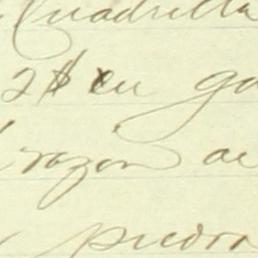 Cuadrilla
2$ en ga
razón de
piedra